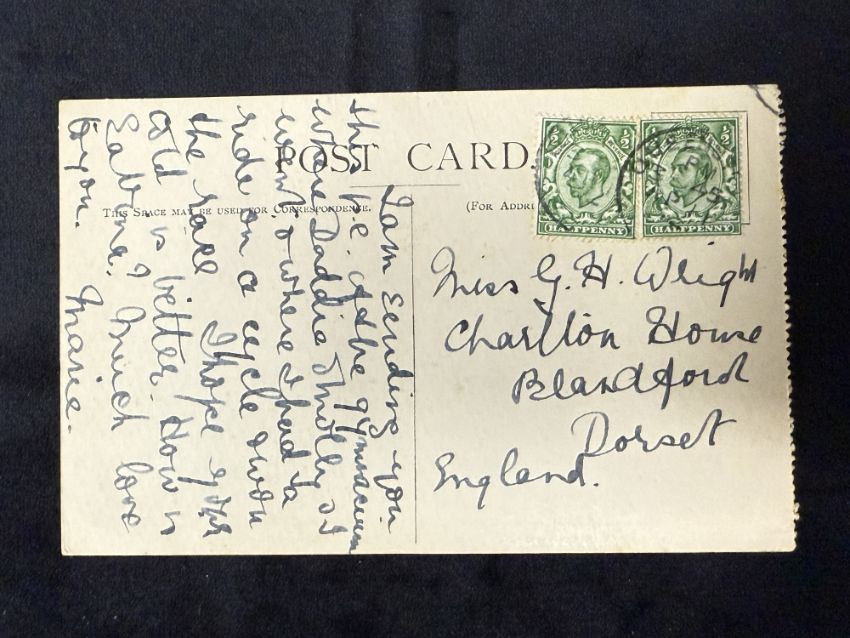 POST CARD.
THIS SPACE MAY BE USED FOR CORRESPONDENCE.
(FOR ADDR
HALFPENNY
HALFPENNY
I am sending you
this p.c. of the gymnasium
where Daddie & Molly & I
went & where I had a
ride on a cycle & won
the race I hope your
cold is better. How is
Much love
to you. Marie.
Miss G. H. Wright
Charlton House
Blandford
Dorset
England.